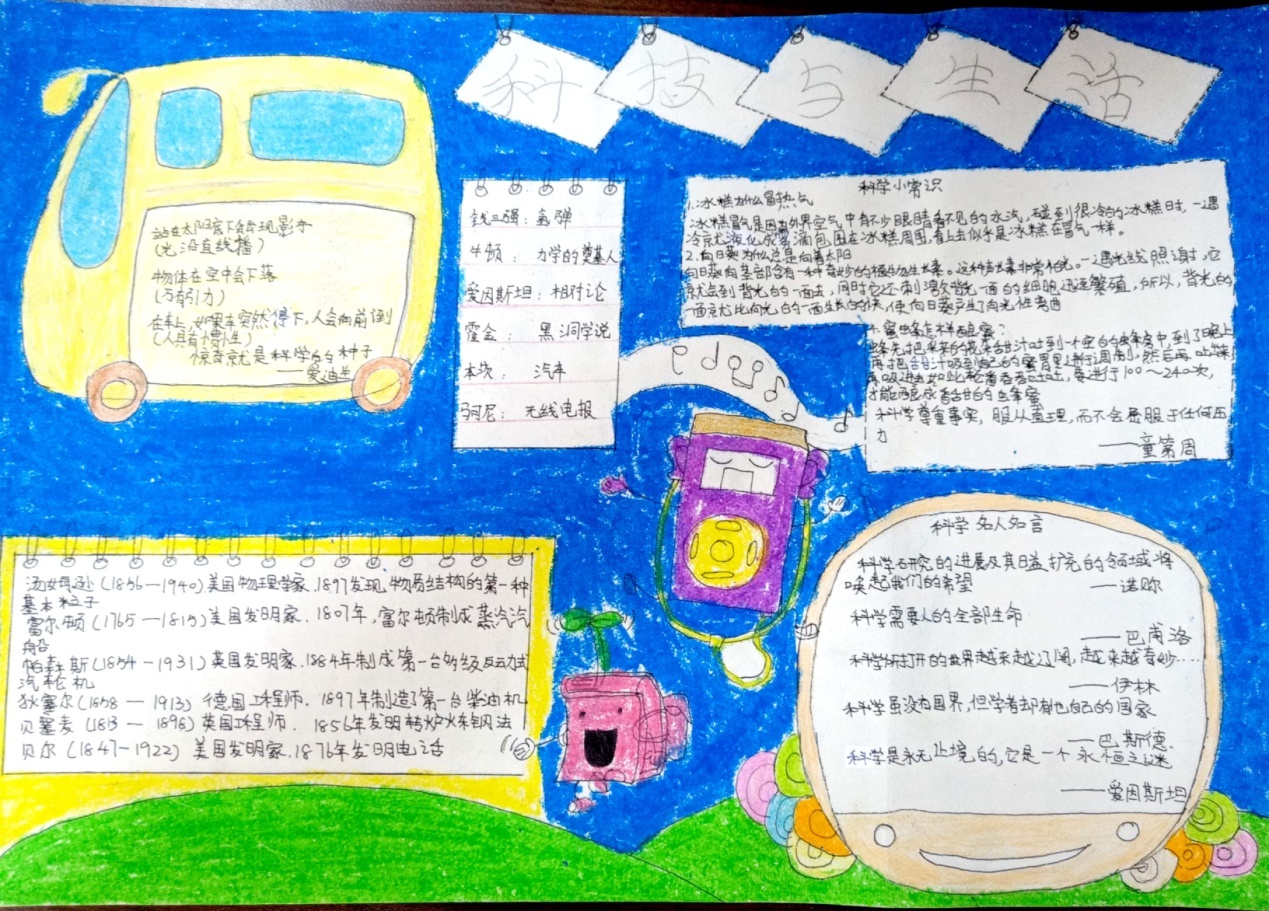 科技与生活
站在太阳底下会出现影子
(光沿直线播)
物体在空中会下落
(万有引力)
在车上,如果车突然停下,人会向前倒
(人具有惯性)
惊奇就是科学的种子
——爱迪生
钱三强:氢弹
牛顿:力学的奠基人
爱因斯坦:相对论
霍金:黑洞学说
本次:汽车
马可尼:无线电报
科学小常识
1.冰糕为什么冒热气
冰糕冒气是因为外界空气中有不少眼睛看不见的水汽,碰到很冷的冰糕时,一遇
冷就液化成雾滴包围在冰糕周围,看上去似乎是冰糕在冒气一样。
2.向日葵为什么总是向着太阳
向日葵的茎部含有一种奇妙的植物生长素。这种生长素非常怕光。一遇光线照谢,它
就会到背光的一面去,同时它还刺激背光一面的细胞迅速繁殖,所以,背光的
一面就比向光的一面生长的快,使向日葵产生向光性弯曲
蜜蜂怎样酿蜜?
蜂先把采来的花朵甜汁吐到一个空的蜂房中,到了晚上
再把甜汁吸到自己的蜜胃里进行调制,然后再吐出来
再吸进去,如此轮番吞吞吐吐,要进行100~240次,
才能酿成香甜的蜂蜜
科学尊重事实,服从真理,而不会屈服于任何压
力
——童第周
汤姆逊(1856—1940)美国物理学家.1897发现物质结构的第一种
基本粒子
富尔顿(1765—1815)美国发明家.1807年,富尔顿制成蒸汽汽
船
帕森斯(1854—1931)英国发明家.1884年制成第一台多级反动式
汽轮机
狄塞尔(1858—1913)德国工程师.1897年制造了第一台柴油机
贝塞麦(1813—1898)英国工程师.1856年发明转炉炼钢法
贝尔(1847—1922)美国发明家.1876年发明电话
科学名人名言
科学研究的进展及其日益扩充的领域将
唤起我们的希望
——诺贝尔
科学需要人的全部生命
——巴甫洛
科学所打开的世界越来越辽阔,越来越奇妙.....
——伊林
科学虽没有国界,但学者却有他自己的国家
——巴斯德
科学是永无止境的,它是一个永恒之谜
——爱因斯坦